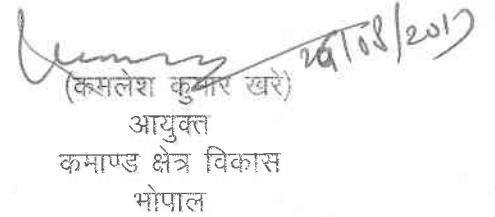 26/08/2017
(कमलेश कुमार खरे)
आयुक्त
कमाण्ड क्षेत्र विकास
भोपाल